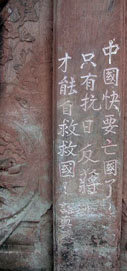 中國快要亡國了，
只有抗日反蔣
才能自救救國！